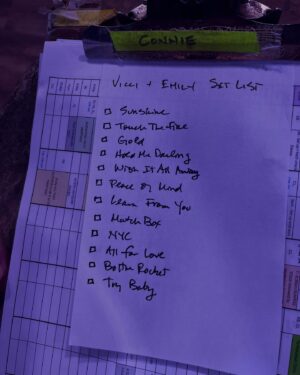 CONNIE
VICCI + EMILY SET LIST
Sunshine
Touch The Fire
Gold
Hold Me Darling
Wish It All Away
Peace of Mind
Learn From You
Match Box
NYC
All for Love
Bottle Rocket
Toy Baby